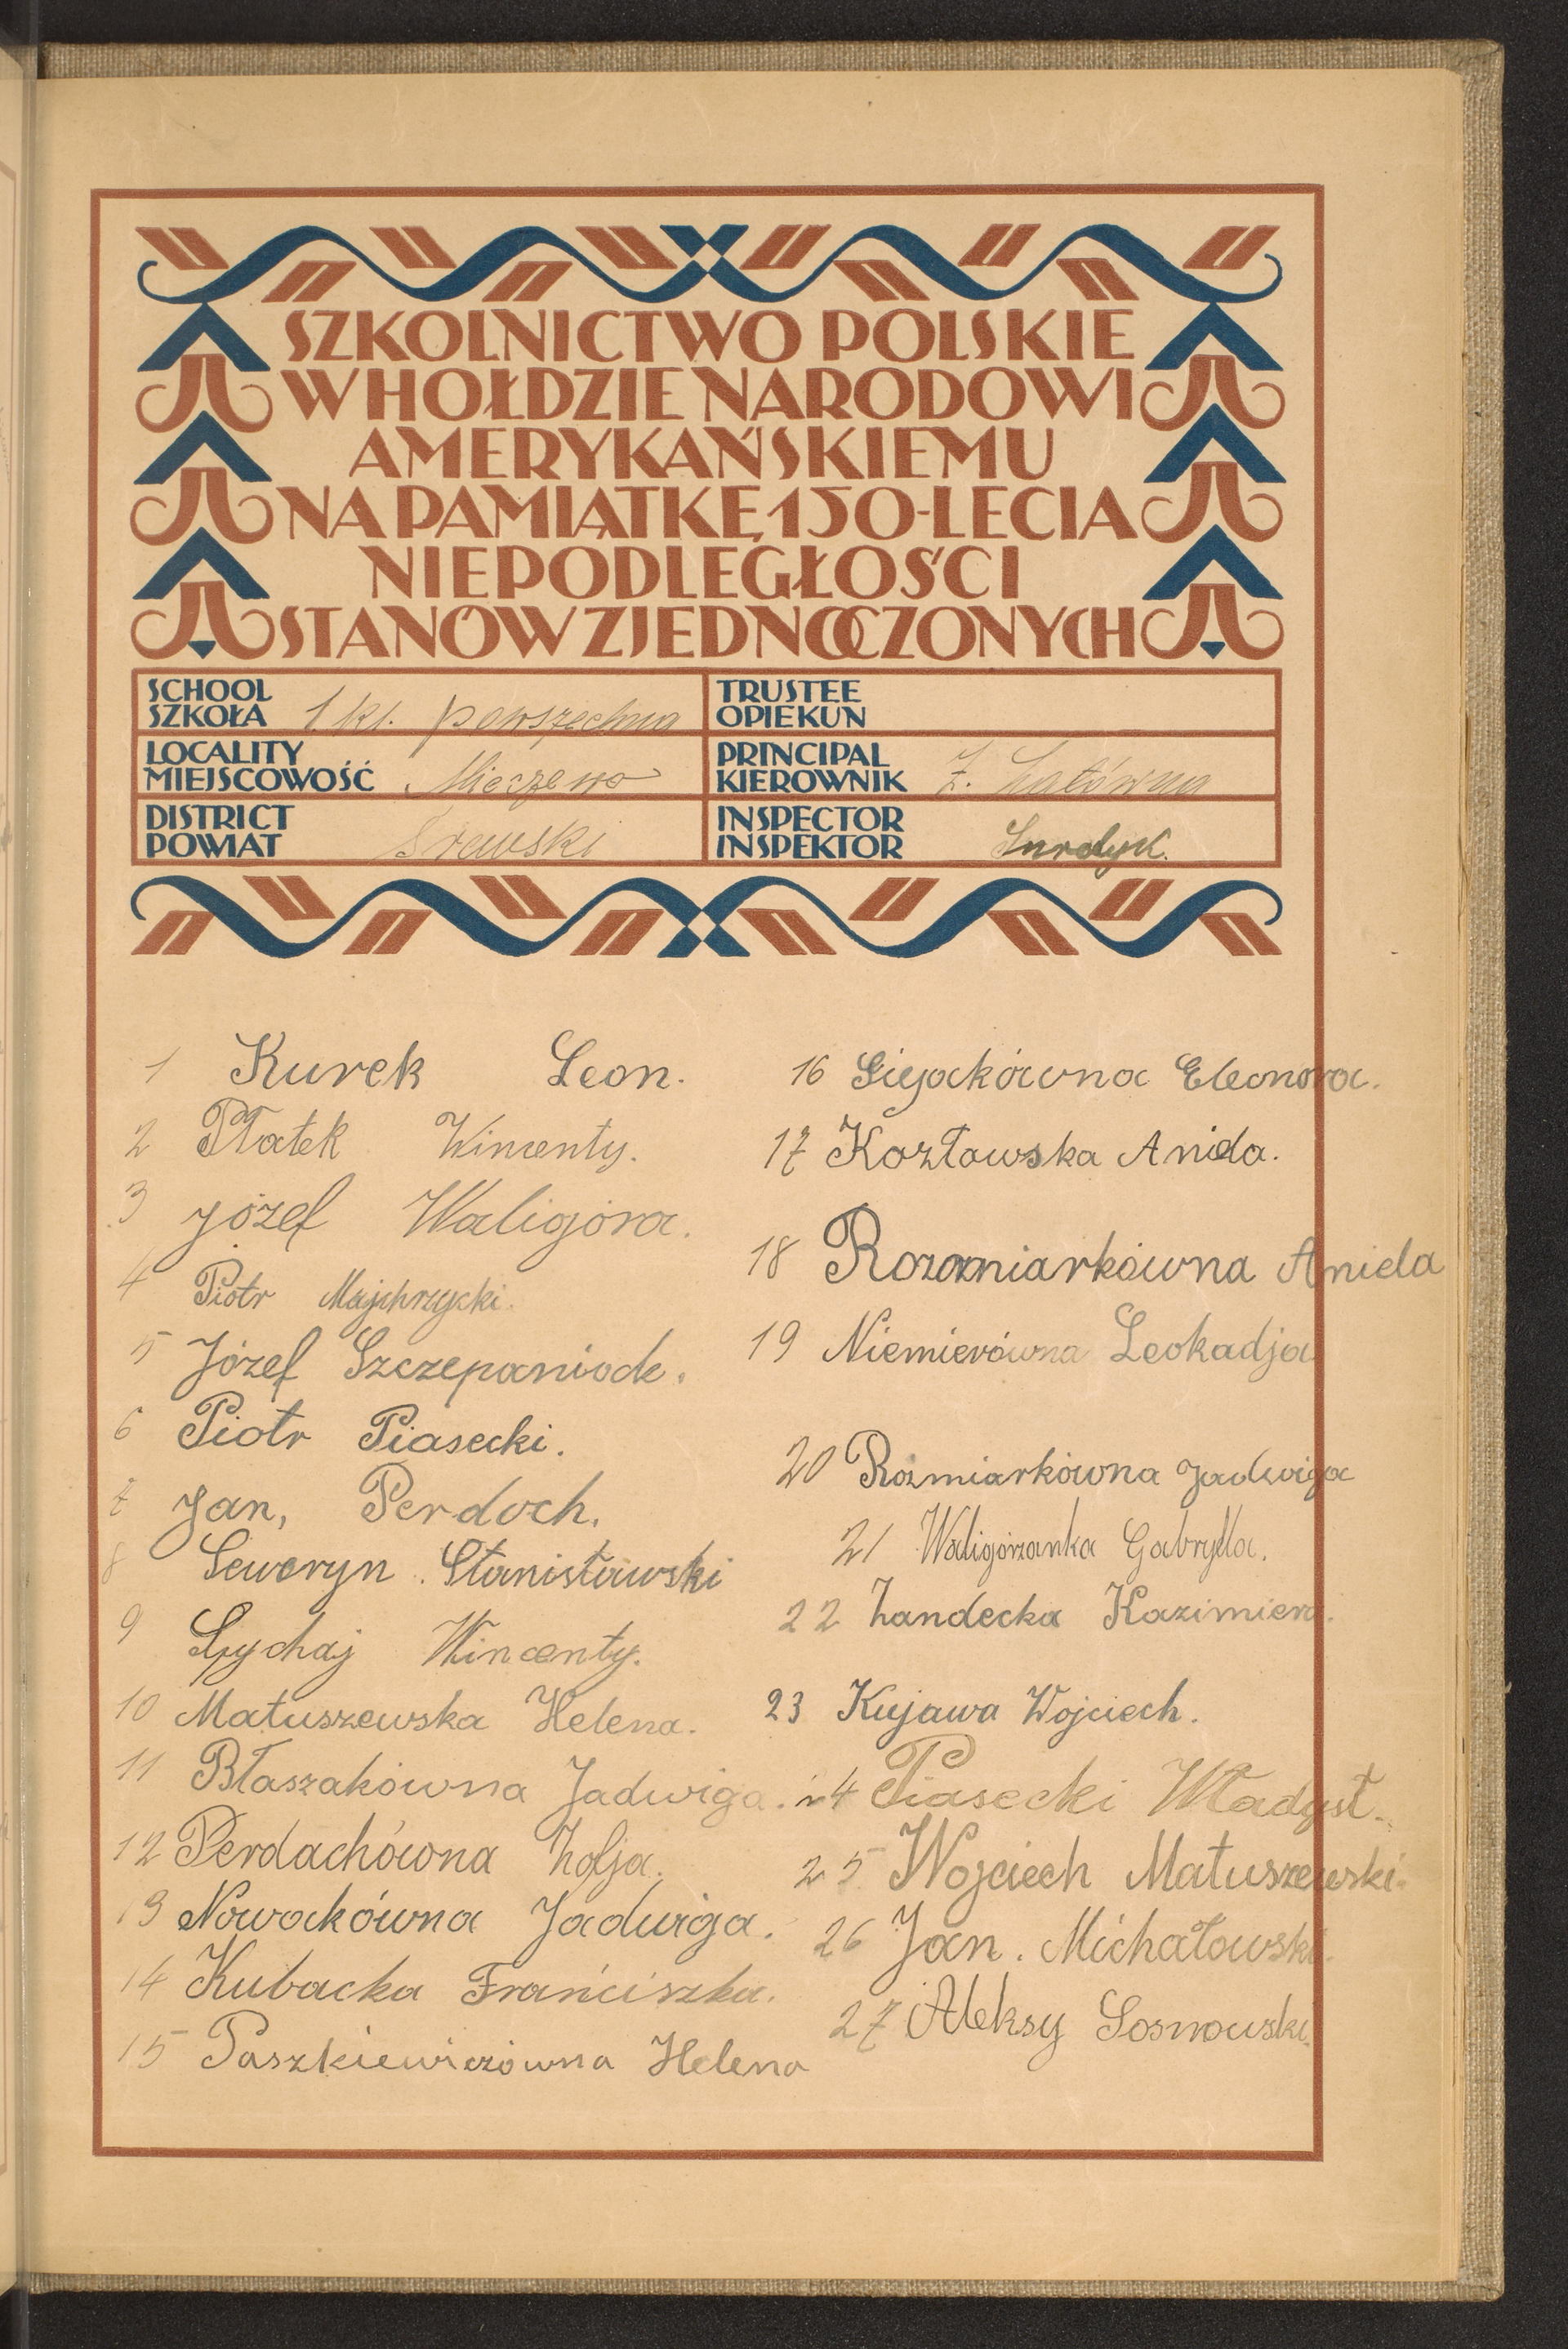 SZKOLNICTWO POLSKIE
W HOŁDZIE NARODOWI
AMERYKAŃSKIEMU
NA PAMIĄTKĘ 150-LECIA
NIEPODLEGŁOŚCI
STANÓW ZJEDNOCZONYCH
SCHOOL
SZKOŁA 1 kl. powszechna
TRUSTEE
OPIEKUN
LOCALITY
MIEJSCOWOŚĆ Mieczewo
PRINCIPAL
KIEROWNIK Z.
DISTRICT
POWIAT Śremski
INSPECTOR
INSPEKTOR
1 Kurek Leon.
2 Płatek Wincenty.
3 Józef Waligóra.
4 Piotr Majchrzycki.
5 Józef Szczepaniack.
6 Piotr Piasecki.
7 Jan, Perdoch.
8 Seweryn. Stanisławski
9 Wincenty.
10 Matuszewska Helena.
11 Błaszakówna Jadwiga.
12 Perdachówna Zofja.
13 Nowackówna Jadwiga.
14 Kubacka Franciszka.
15 Paszkiewiczówna Helena
16 Eleonora.
17 Kozłowska Aniela.
18 Aniela
19 Niemierówna Leokadja
20 Rozmiarkówna Jadwiga
21 Waligórzanka Gabryela.
22 Zandecka Kazimiera.
23 Kujawa Wojciech.
24 Piasecki Władysł.
25 Wojciech Matuszewski.
26 Jan. Michałowski.
27 Aleksy Sosnowski.